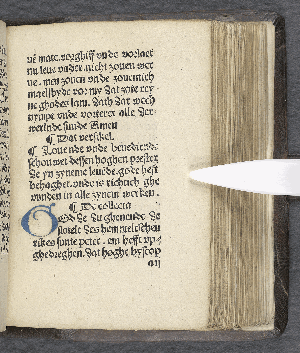 nē mate. vorghiff vnde vorlaet
nu leue vader. nicht souen wer
ue. men souen vnde souentich
maell byde vor my dat sote rey
ne ghodes lam. dath dar wech
nympt vnde vorteret alle der
werlnde sunde Amen
¶ Dat versikel.
¶ Louende vnde benediende
schouwet dessen hoghen prester
de yn syneme leuende gode hefft
behaghet. vnde is richtich ghe
vunden in alle synen werken.
¶ De collecta
God de du gheuende de
slotele des hemmelschen
rikes sunte peter. em hefft vp
ghedreghen. dat hoghe byscop